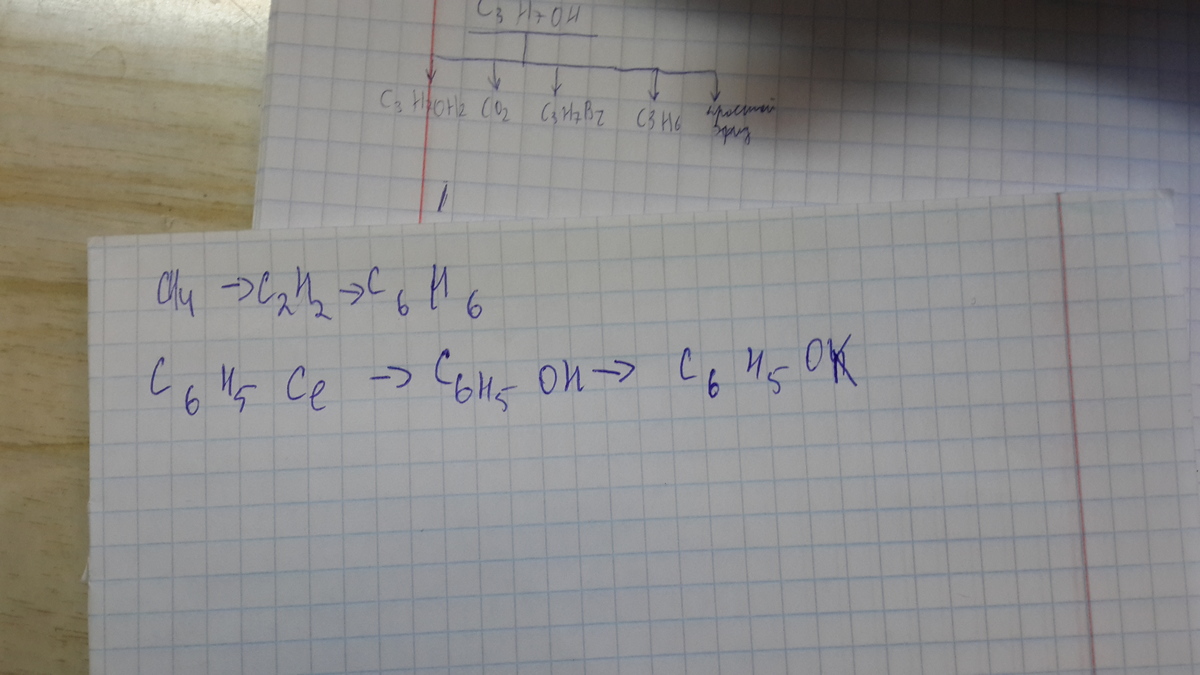 C3 H7OH
C3 H7OH2 CO2 C3H7Br C3H6 простой
эфир
CH4 → C2H2 → C6 H6
C6 H5 Cl → C6H5 OH → C6 H5 OK